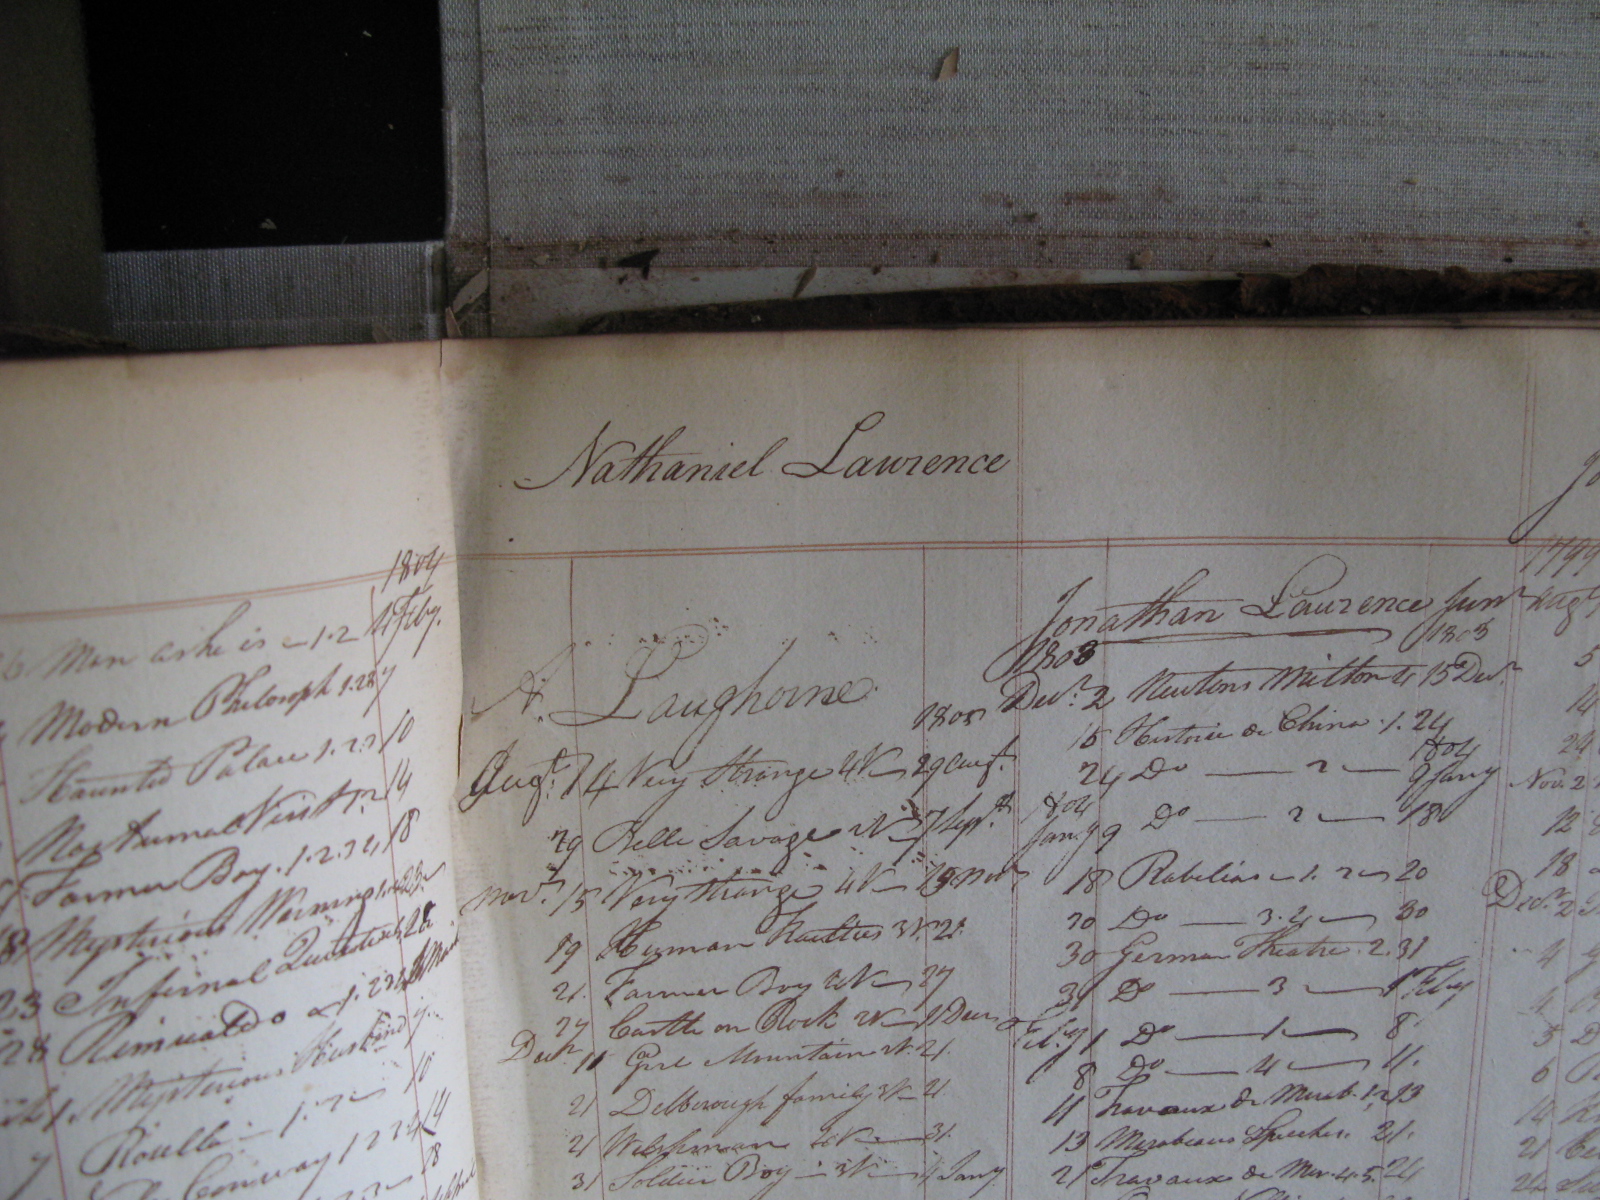 1804
Man as he is 1.2 4 Feby.
Modern Philosoph 1.2 &
Haunted Palace 1.2.3 10
Nocturnal Visit 1.2 14
Farmer Boy. 1.2.3 4 18
18 Mysterious Warning
23 Infernal Quixote
28 Rinualdo
Mysterious Husband
7 Rosella 1.2
Conway 1 2 3 4 14
Nathaniel Lawrence
A. Laughorne
1805
Augt. 14 Very Strange 4V 29 Augt.
29 Belle Savage 2V 7 Sept.
Novr. 15 Very Strange 4V 19 Novr
19 Human Frailties 3V. 21.
21. Farmer Boy 4V 27
27 Castle on Rock 2V 11 Decr
Decr. 11 Girl Mountain 2V. 21.
21 Delborough family 3V 21
21 Welchman 4V 31.
31 Soldier Boy 3V 4 Jany
Jonathan Lawrence Junr
1803 1803
Decr. 2 Newtons Milton 4 15 Decr.
15 Histoire de China . 1. 24
1804
24 Do 2 9 Jany
1804
Jany 9 Do 2 18
18 Rabelias 1. 2 20
20 Do 3.4 30
30 German Theatre . 2. 31
31 Do 3 1 Feby
Feby 1 Do 1 8
8 Do 4 11.
11 Travaux de Mirab. 1.2 13
13 Mirabeaus Speeches. 21.
21 Travaux de Mir. 4.5. 24
Jo
1799
Augt
5
14
24
Nov. 2
12
18
Decr. 2
4
4
5 D
6
14
21